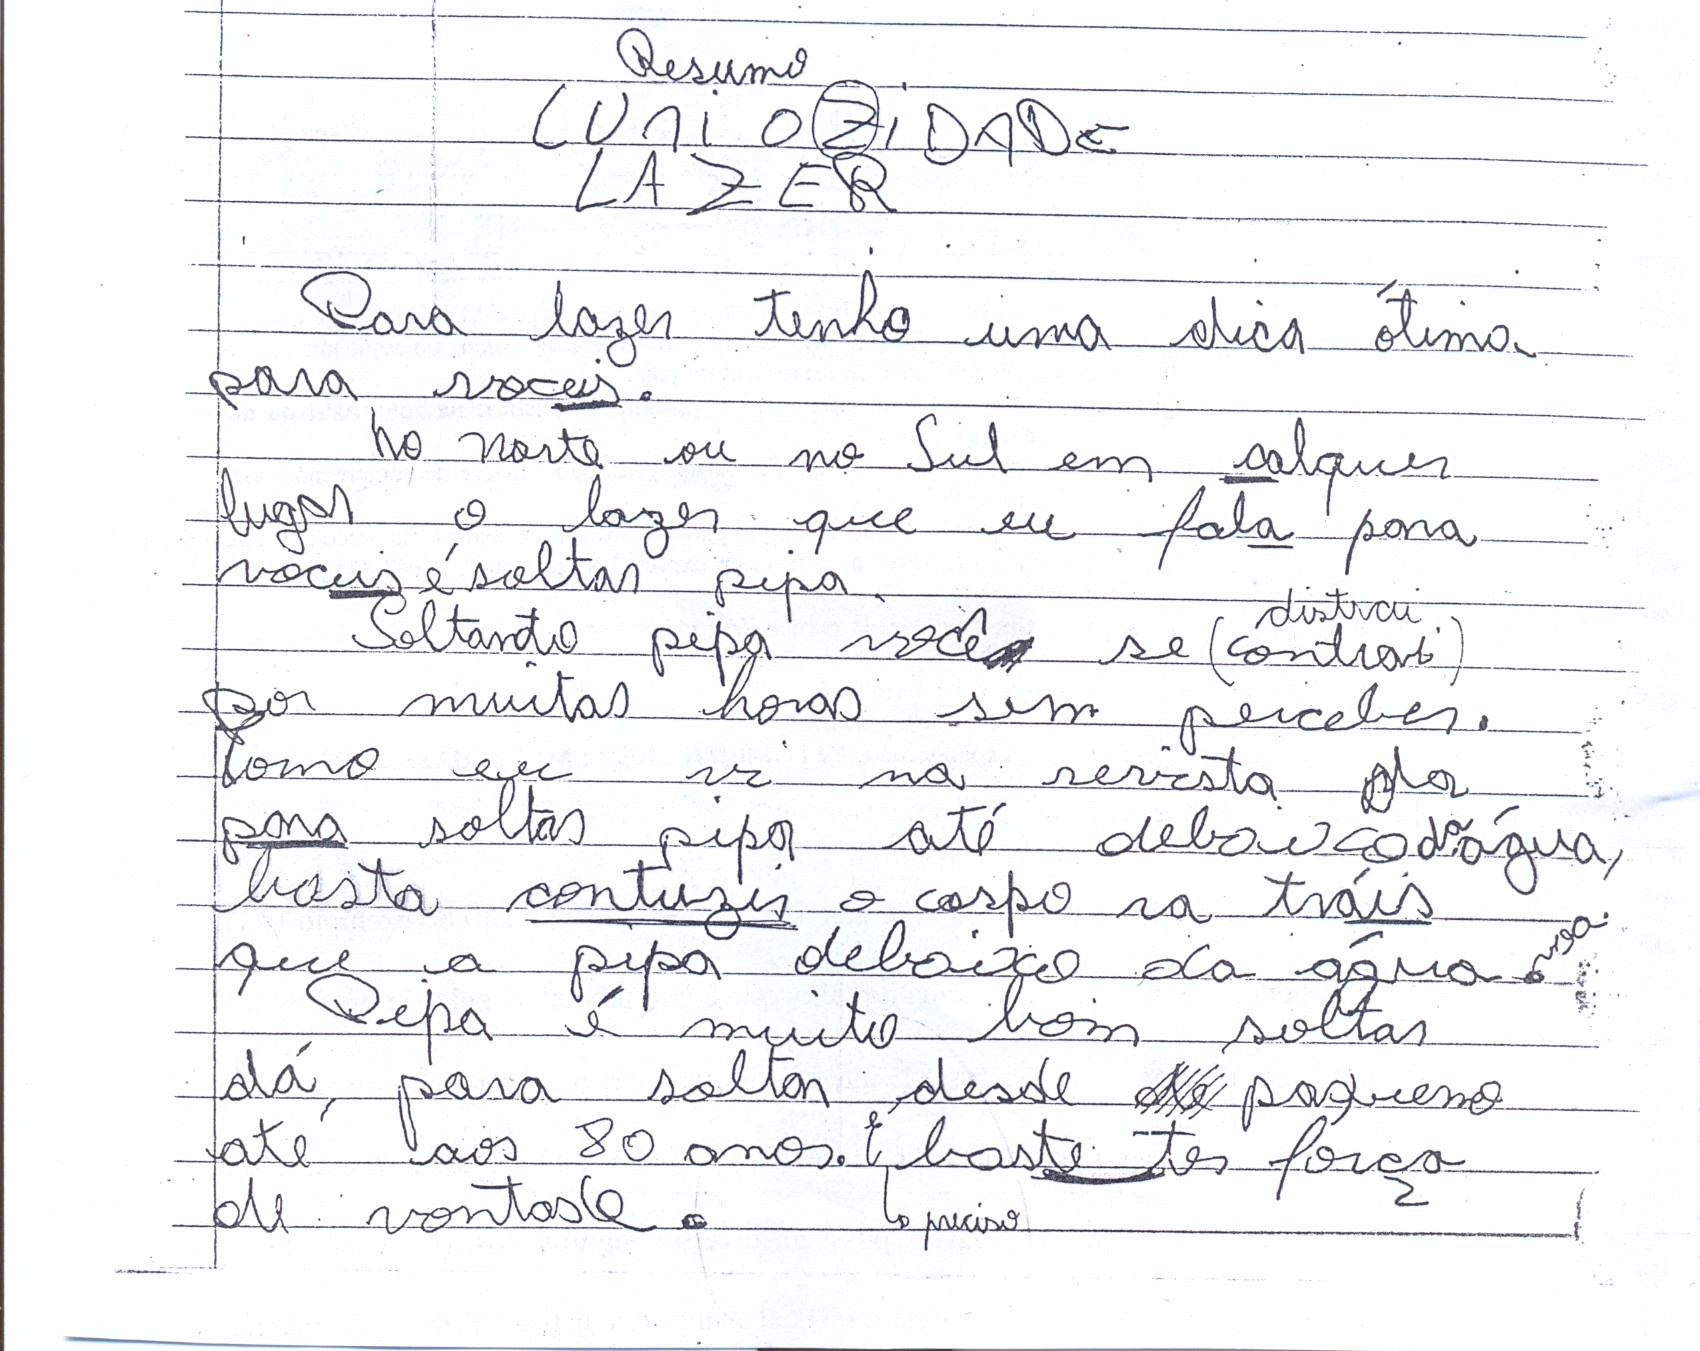 Resumo
CURIOZIDADE
LAZER
Para lazer tenho uma dica ótima
para voceis.
No Norte ou no Sul em calquer
lugar o lazer que eu fala para
voceis é soltar pipa.
distrai
Soltando pipa você se (contrai)
por muitas horas sem perceber.
Como eu vi na revista da
para soltar pipa até debaixo da água,
basta contuzir o corpo na tráis
que a pipa debaixo da água.
Pipa é muito bom soltar
dá, para soltar desde paqueno
até aos 80 anos. É baste ter força
de vontade.
preciso